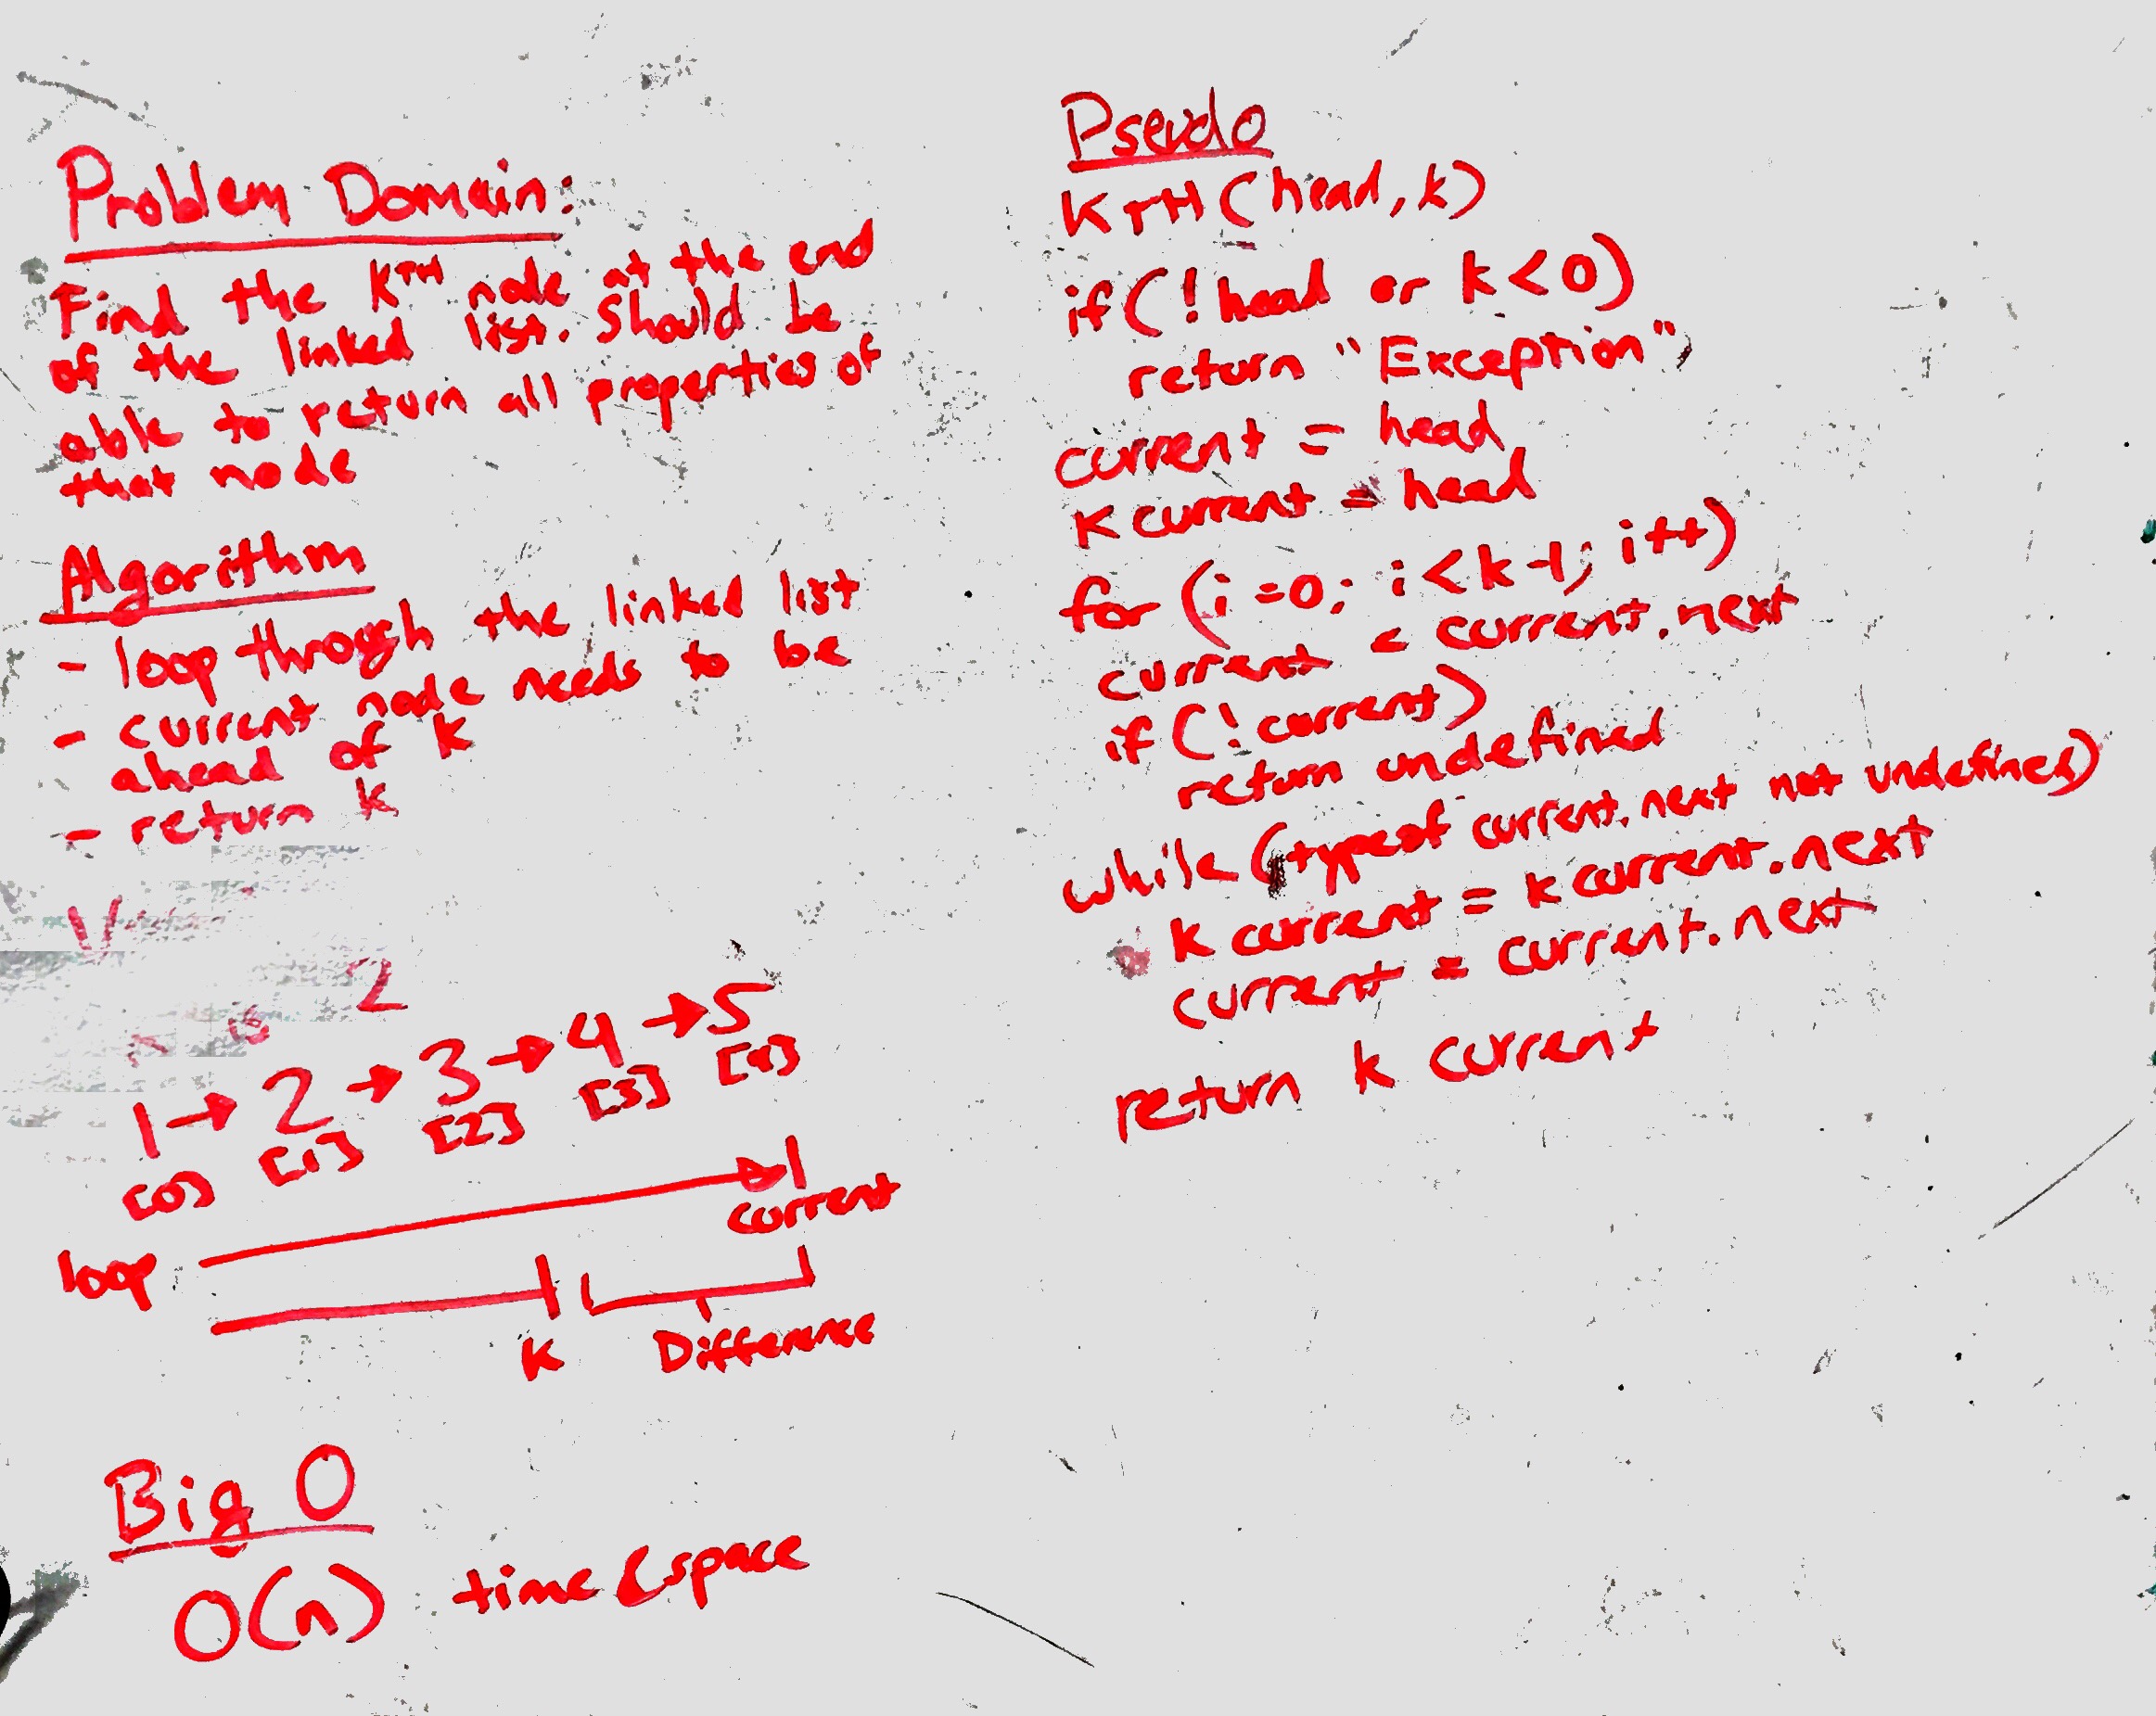 Problem Domain:
Find the KTH node at the end
of the linked list. Should be
able to return all properties of
that node
Algorithm
- loop through the linked list
- current node needs to be
ahead of k
- return k
is 2
1 → 2 → 3 → 4 → 5
[0] [1] [2] [3] [4]
loop
current
K Difference
Big O
O(n) time space
Pseudo
KTH(head, k)
if(!head or k<0)
return "Exception"
current = head
k current = head
for (i=0; i<k-1; i++)
current = current.next
if(!current)
return undefined
while (typeof current.next not undefined)
k current = k current.next
current = current.next
return k current